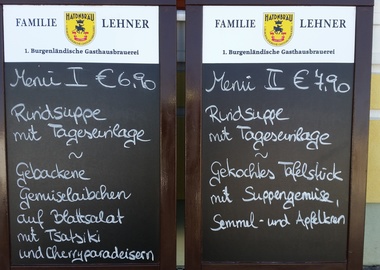 FAMILIE HAYDNBRÄU LEHNER
1. Burgenländische Gasthausbrauerei
Menü I € 6,90
Rindsuppe
mit Tageseinlage
~
Gebackene
Gemüselaibchen
auf Blattsalat
mit Tsatsiki
und Cherryparadeisern
FAMILIE HAYDNBRÄU LEHNER
1. Burgenländische Gasthausbrauerei
Menü II € 7,90
Rindsuppe
mit Tageseinlage
~
Gekochtes Tafelstück
mit Suppengemüse,
Semmel- und Apfelkren